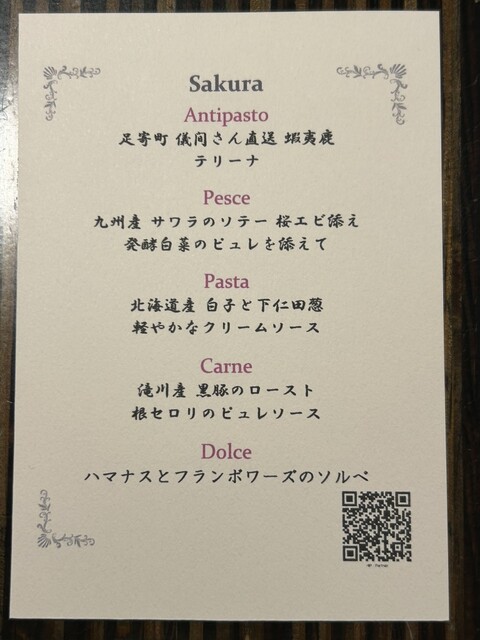 Sakura
Antipasto
足寄町 儀間さん直送 蝦夷鹿
テリーナ
Pesce
九州産 サワラのソテー 桜エビ添え
発酵白菜のピュレを添えて
Pasta
北海道産 白子と下仁田葱
軽やかなクリームソース
Carne
滝川産 黒豚のロースト
根セロリのピュレソース
Dolce
ハマナスとフランボワーズのソルベ